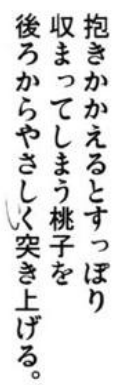 抱きかかえるとすっぽり
収まってしまう桃子を
後ろからやさしく突き上げる。